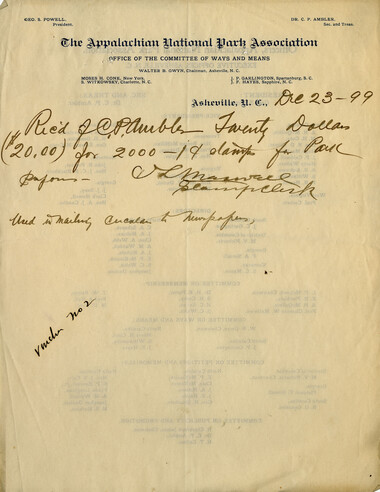 GEO. S. POWELL, President.
DR. C. P. AMBLER, Sec. and Treas.
The Appalachian National Park Association
OFFICE OF THE COMMITTEE OF WAYS AND MEANS
WALTER B. GWYN, Chairman, Asheville, N. C.
MOSES H. CONE, New York.
S. WITKOWSKY, Charlotte, N. C.
J. P. GARLINGTON, Spartanburg, S. C.
J. F. HAYES, Sapphire, N. C.
Asheville, N. C., Dec 23-99
Rec'd of C. P. Ambler Twenty Dollars
($20.00) for 2000-1¢ stamps for Park
papers-
Maxwell
Stamp Clerk
Used in mailing circulars to Newspapers,
Voucher No 2